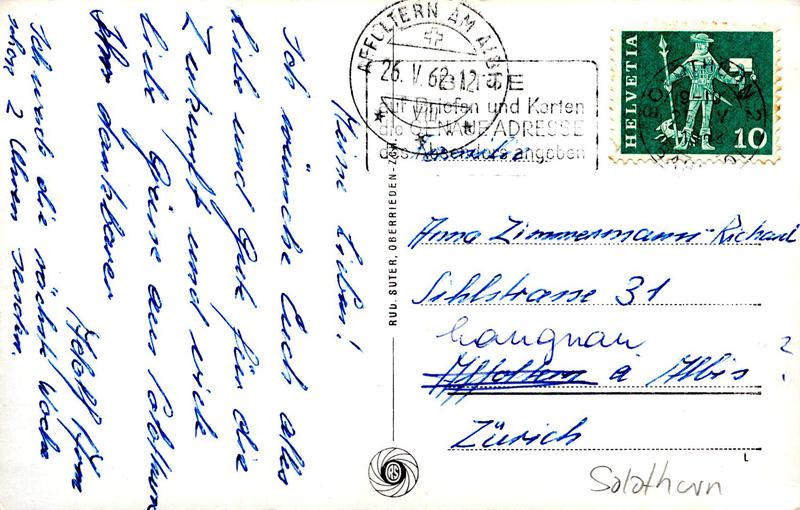 Meine Lieben!
Ich wünsche Euch alles
Liebe und Gute für die
Zukunft und viele
liebe Grüsse aus Solothurn
Ihr dankbarer
Adolf
Ich werde die nächste Woche
2 Uhren senden.
AFFOLTERN AM ALBIS
26. V. 62-12
VIII
BITTE
auf Briefen und Karten
die GENAUE ADRESSE
des Absenders angeben
HELVETIA
10
RUD. SUTER, OBERRIEDEN-
Anna Zimmermann-Richard
Sihlstrasse 31
Langnau
Affoltern a Albis ?
Zürich
L
Solothurn